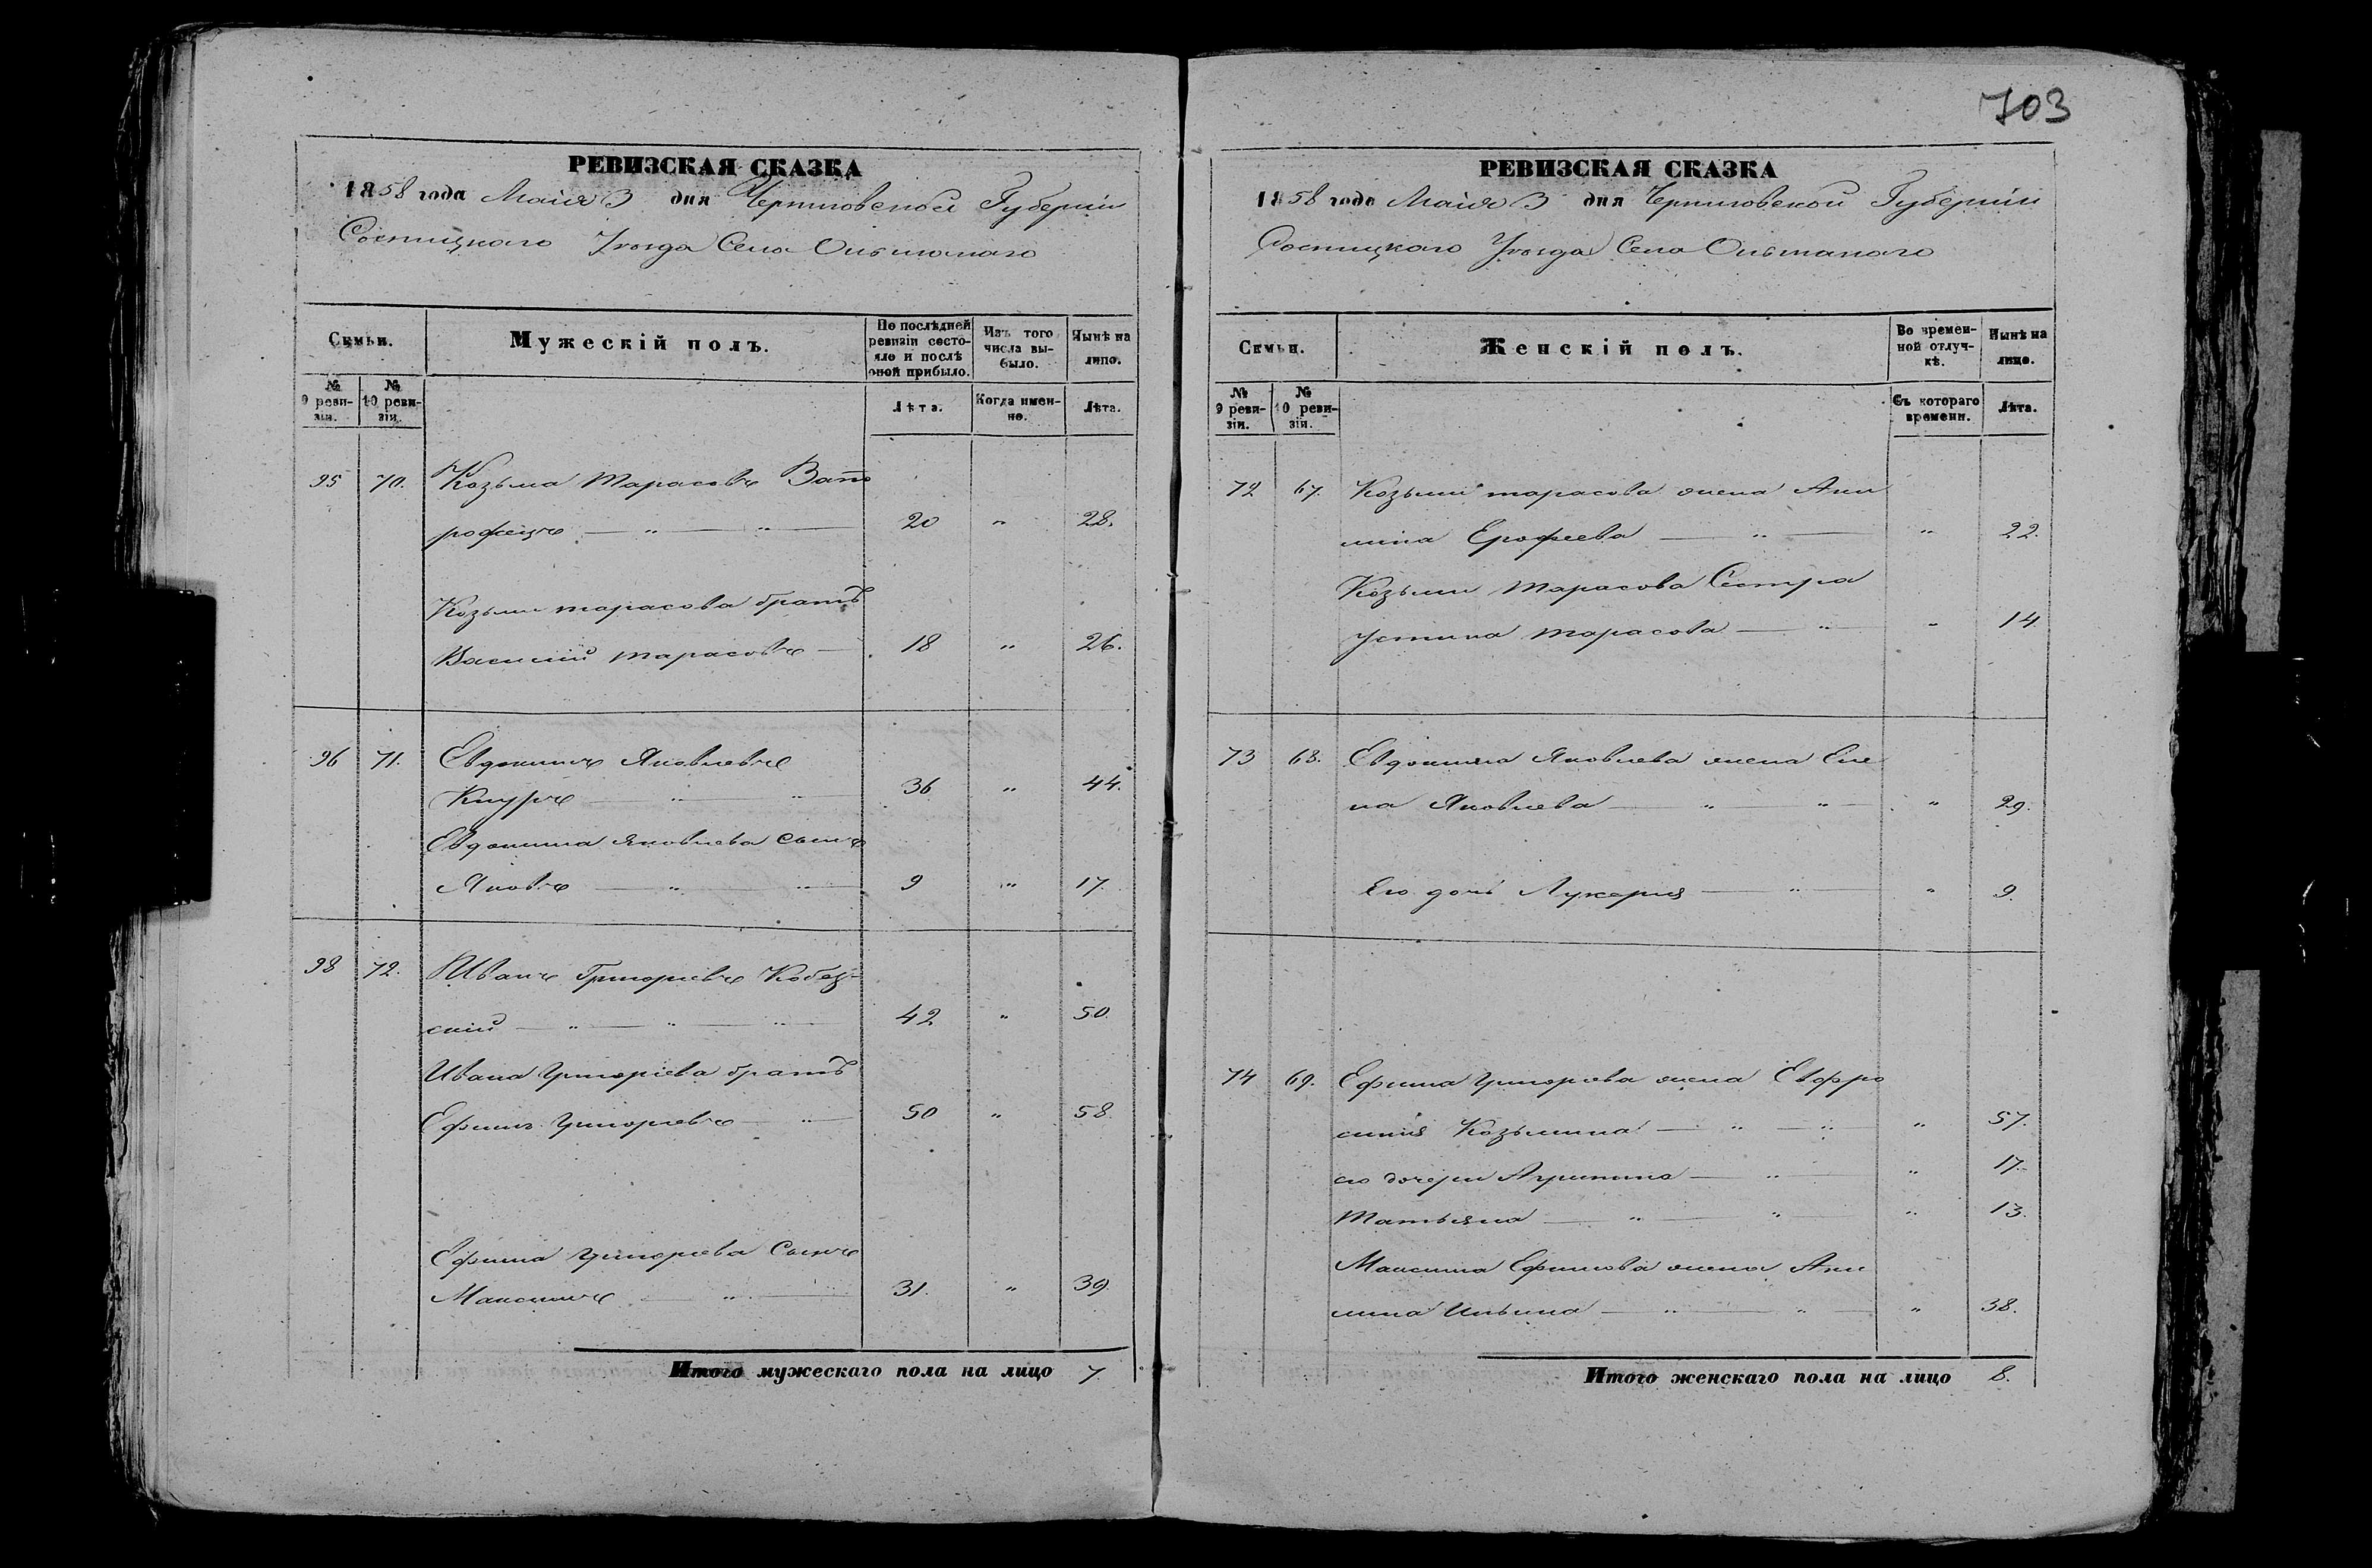 703
РЕВИЗСКАЯ СКАЗКА
1858 года Майя 3 дня Черниговской Губерніи
Сосницкаго Уѣзда Села
Семьи.
Мужескій полъ.
По послѣдней ревизіи состояло и послѣ оной прибыло.
Изъ того числа выбыло.
Нынѣ на лицо.
№ 9 ревизіи.
№ 10 ревизіи.
Лѣта.
Когда именно.
Лѣта.
95 70. Козьма Тарасовъ
20 " 28.
Козьми Тарасова братъ
Василій Тарасовъ 18 " 26.
96 71. Евдокимъ Яковлевъ
Кнуръ " " 36 " 44.
Евдокима Яковлева Сынъ
Яковъ " " 9 " 17.
98 72. Иванъ Григоріевъ Кобец-
скій " " " 42 " 50.
Ивана Григоріева братъ
Ефимъ Григорьевъ " 50 " 58.
Ефима Григорьева Сынъ
Максимъ " 31. " 39.
Итого мужескаго пола на лицо 7
РЕВИЗСКАЯ СКАЗКА
1858 года Майя 3 дня Черниговской Губерніи
Сосницкаго Уѣзда Села
Семьи.
Женскій полъ.
Во временной отлучкѣ.
Нынѣ на лицо.
№ 9 ревизіи.
№ 10 ревизіи.
Съ котораго времени.
Лѣта.
72 67. Козьми Тарасова жена Аки
лина Ерофеева " " 22.
Козьми Тарасова Сестра
Устина Тарасова " " 14.
73 68. Евдокима Яковлева жена Еле
на Яковлева " " " 29.
Его дочь Лукерия " " 9.
74 69. Ефима Григорьева жена Евфро
синия Козьмина " " " 57.
его дочери Агрипина " " 17.
Татьяна " " " 13.
Максима Ефимова жена Аки
лина Ильина " " " 38.
Итого женскаго пола на лицо 8.